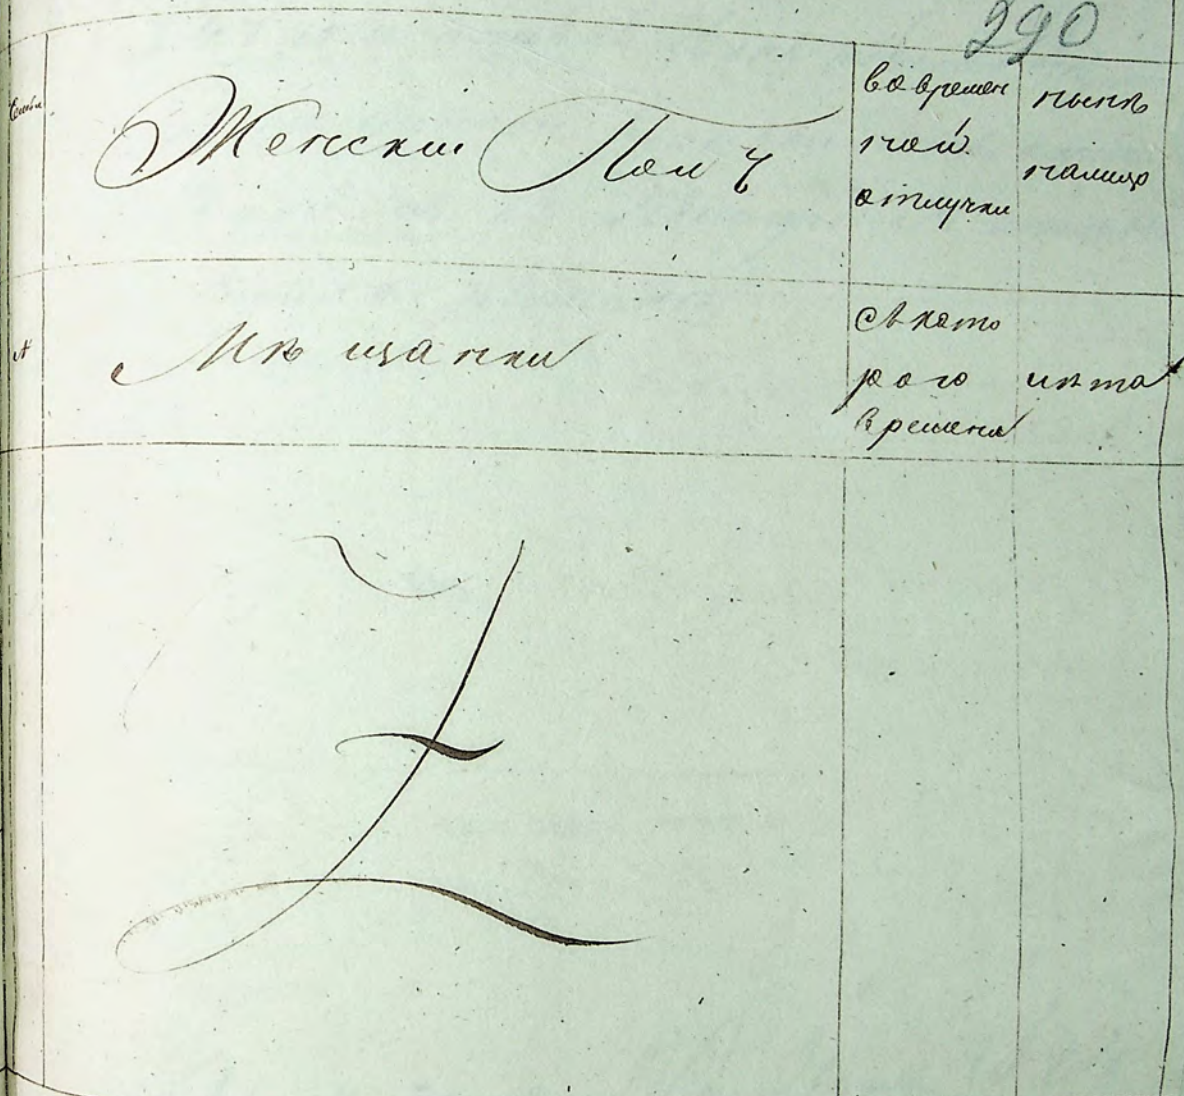 290
Женски Полъ
во времен
ной
отлучки
нынѣ
налицо
Мѣщанки
Съ кото
раго
времена
лѣта